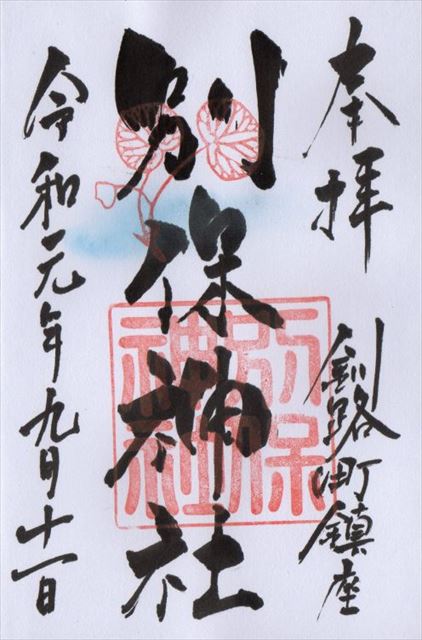 奉拝
釧路町鎮座
別保神社
別保
神社
令和元年九月十一日